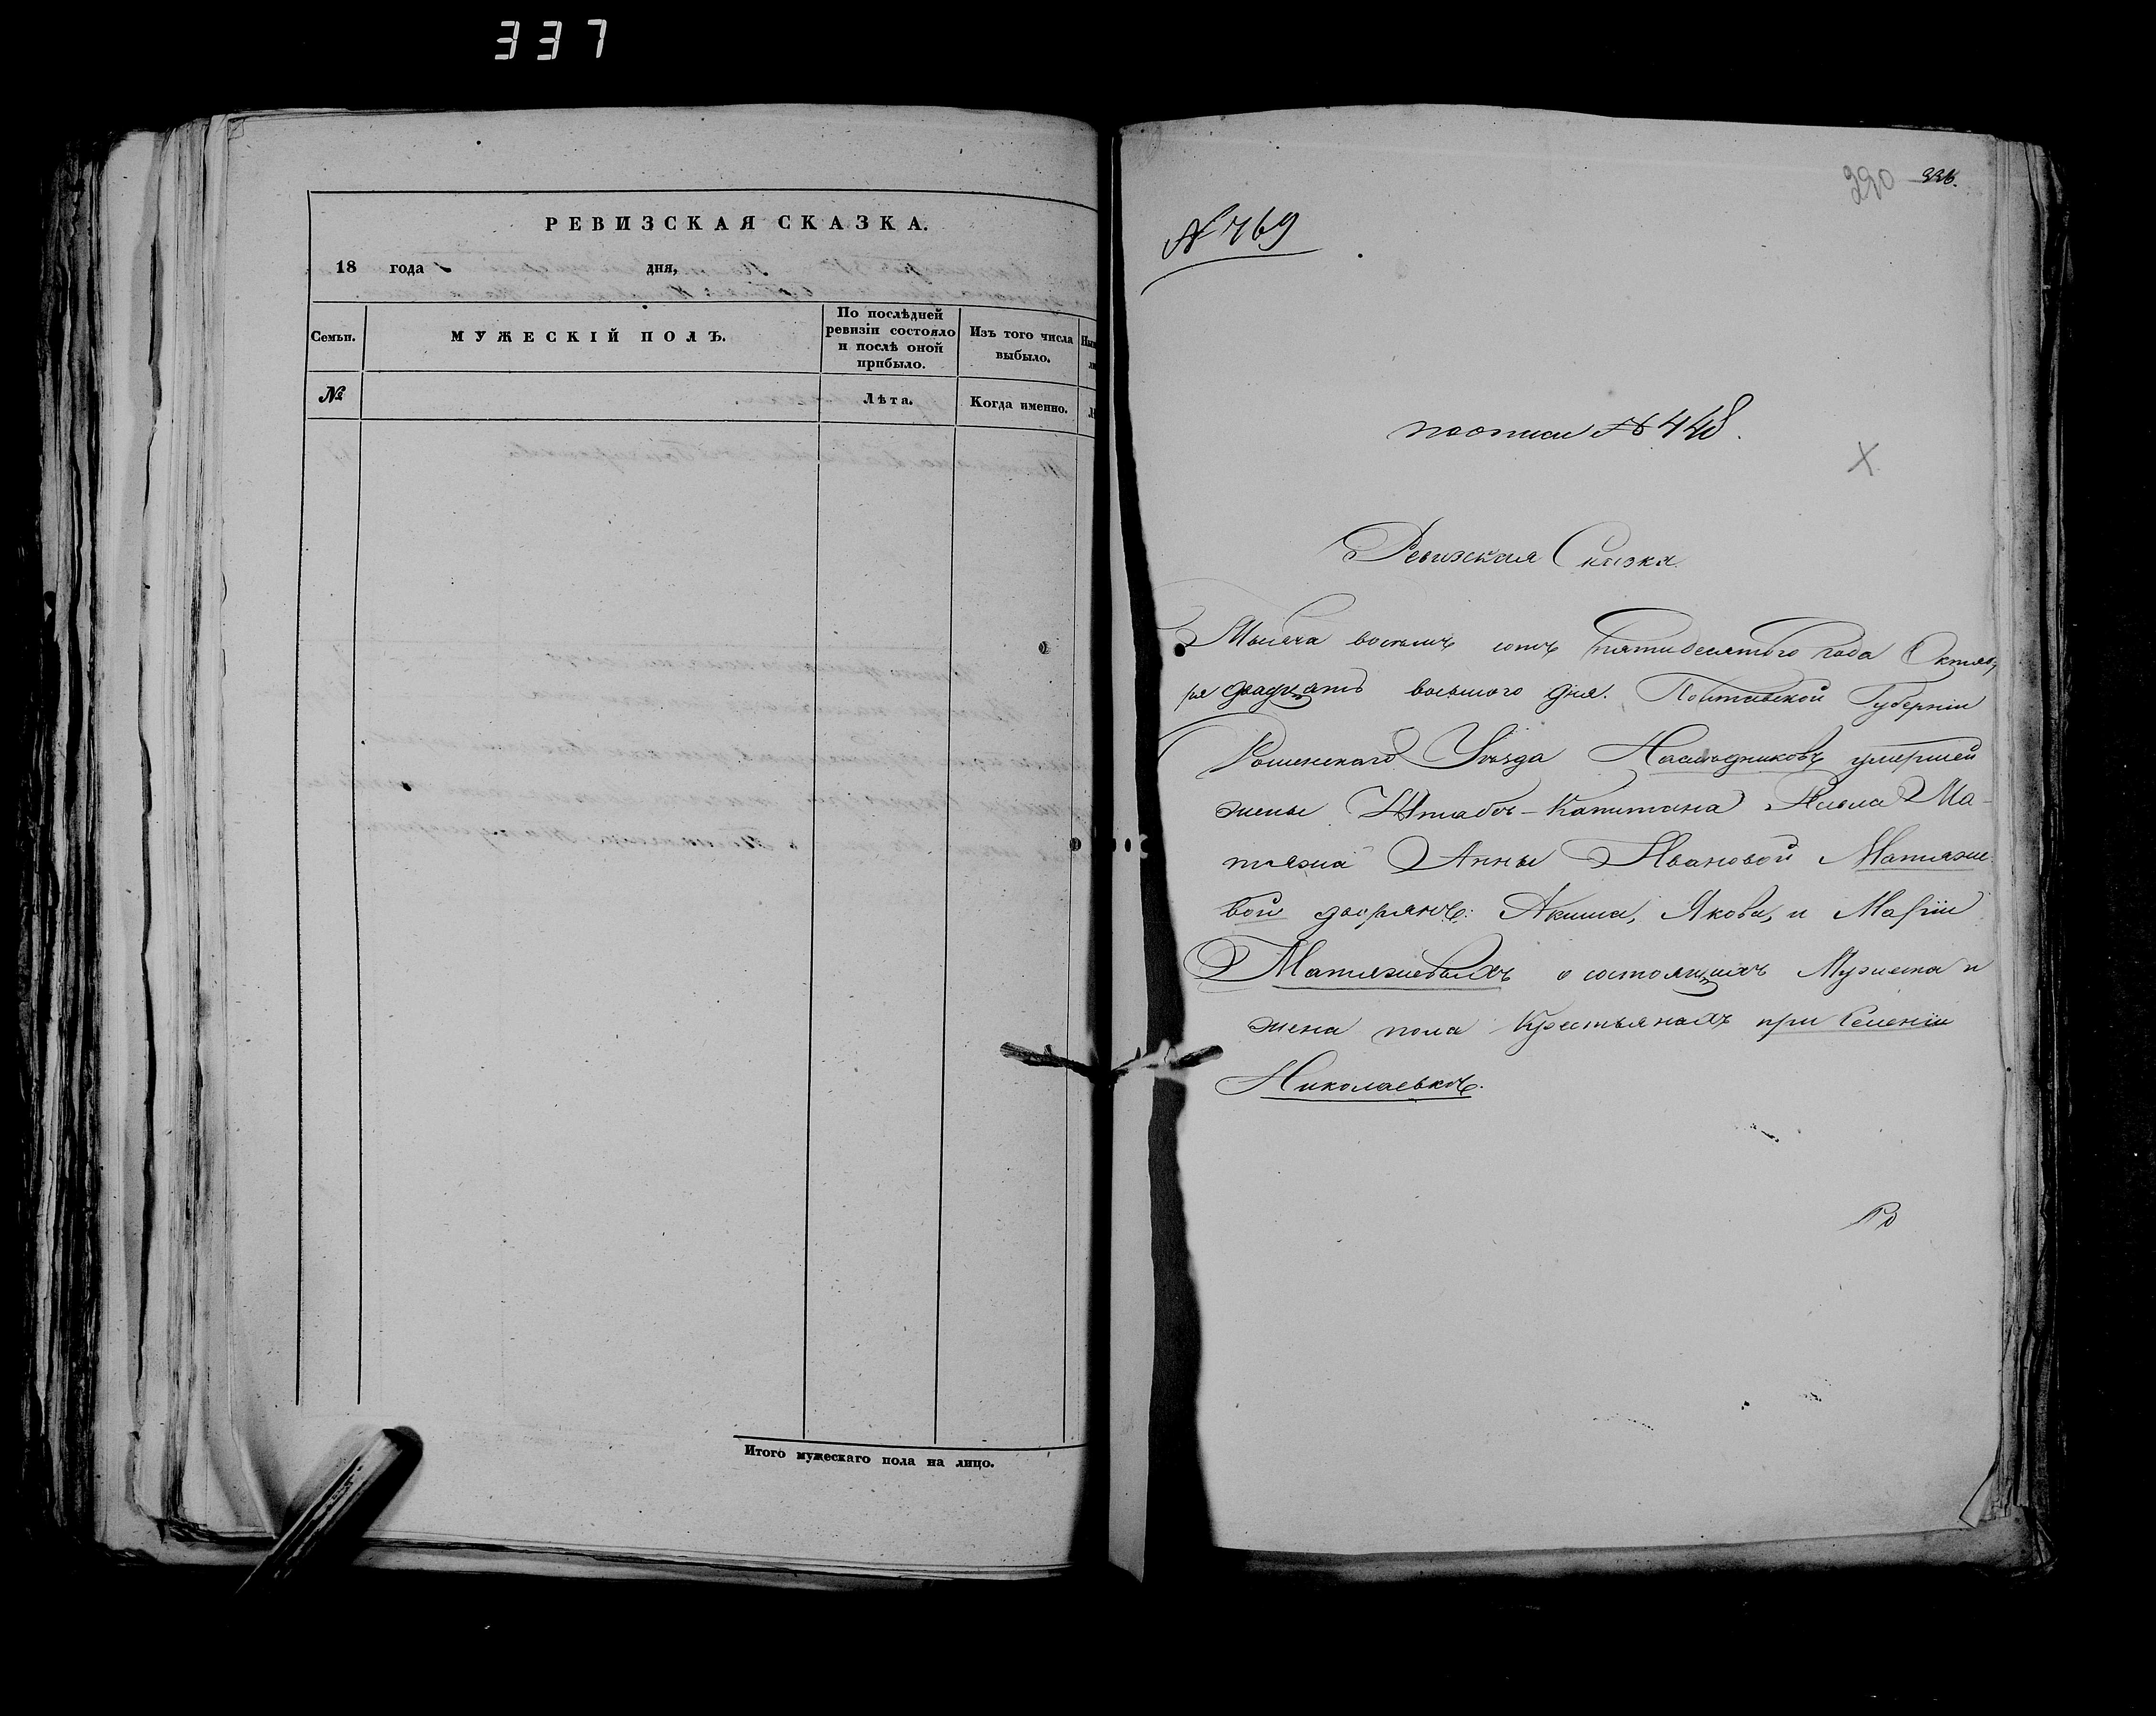 337
РЕВИЗСКАЯ СКАЗКА.
18 года дня,
Семьи.
МУЖЕСКІЙ ПОЛЪ.
По послѣдней
ревизіи состояло
и послѣ оной
прибыло.
Изъ того числа
выбыло.
№
Лѣта.
Когда именно.
Итого мужескаго пола на лицо.
220 336.
№ 769
по описи № 448.
X
Ревизкая Сказка
Тысяча восемъ сотъ пятидесятого года Октяб
ря двадцать восьмого дня. Полтавской Губерніи
Роменскаго Уѣзда Наслѣдниковъ умершей
жены Штабсъ-Капитана Ма-
тяжа Анны Ивановой Матяже
вой дворянъ: Акима, Якова, и Маріи
Матяжевыхъ о состоящихъ Мужеска и
женска пола Крестьянахъ при Селеніи
Николаевкѣ.